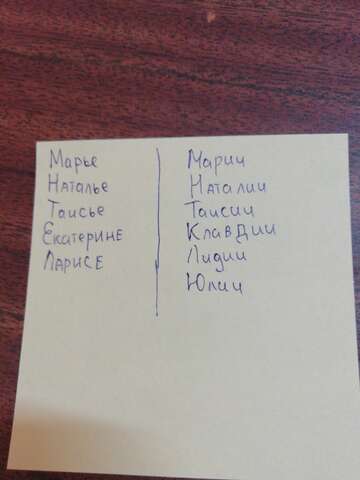 Марье
Наталье
Таисье
Екатерине
Ларисе
Марии
Наталии
Таисии
Клавдии
Лидии
Юлии